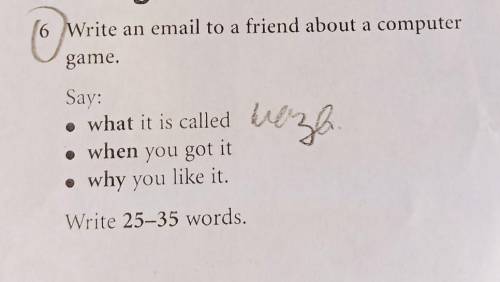 6 Write an email to a friend about a computer
game.
Say:
• what it is called назв.
• when you got it
• why you like it.
Write 25–35 words.